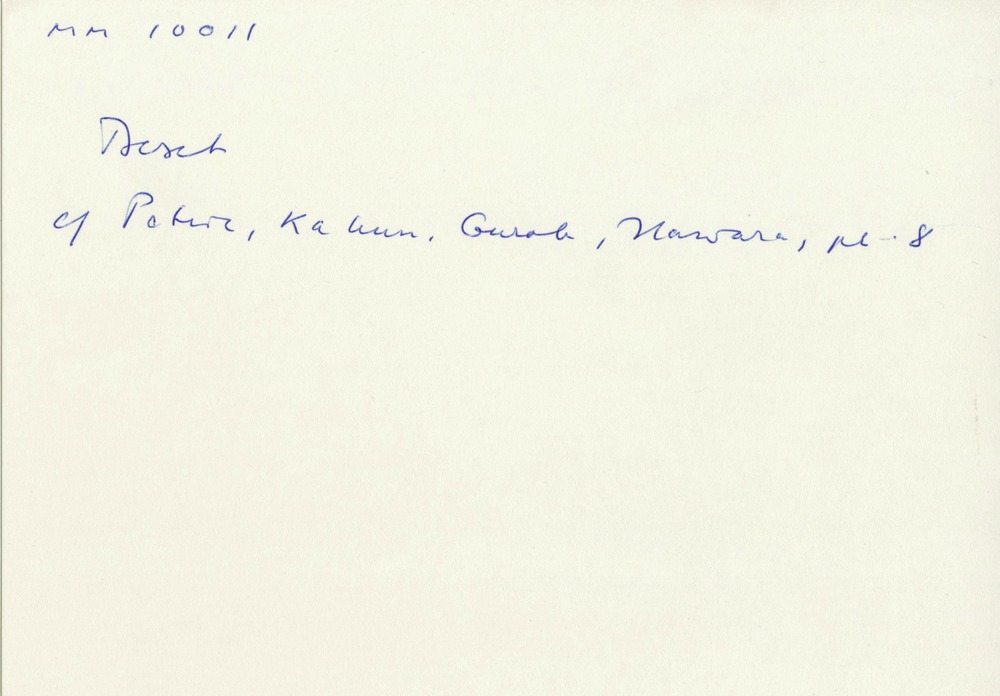 MM 10011
cf Petrie, Kahun, Gurob, Hawara, pl. 8